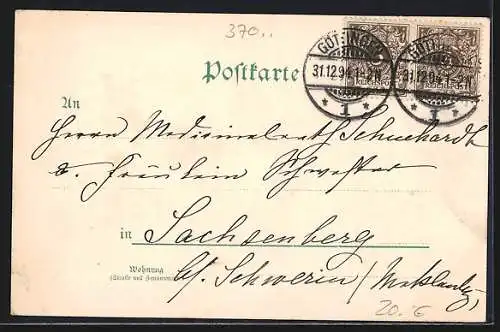 370..
GÖTTINGEN
31.12.94.1-2N
1
GÖTTINGEN
31.12.94.1-2N
1
Postkarte
An
Herrn Medicinalrath Schuchardt
u. Fräulein Schwester
in Sachsenberg
Wohnung
(Straße und Hausnummer)
b/ Schwerin (Meklenbg.)
20.-€